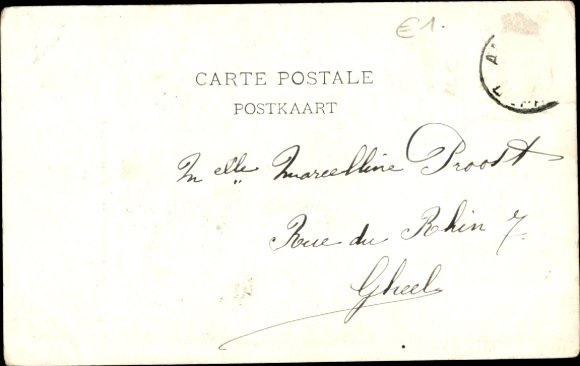 €1.
CARTE POSTALE
POSTKAART
Melle Marcelline Proost
Rue du Rhin 7.
Gheel